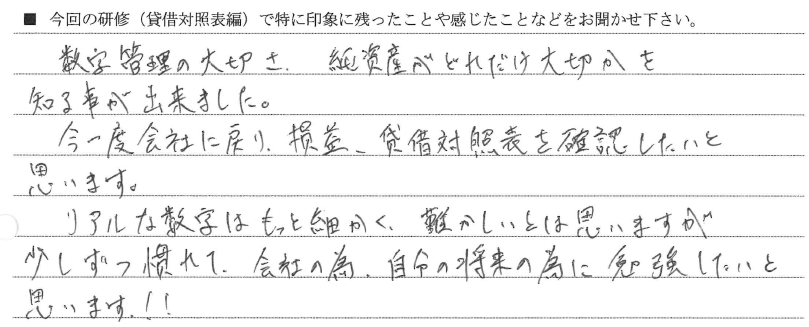 ■ 今回の研修（貸借対照表編）で特に印象に残ったことや感じたことなどをお聞かせ下さい。
数字管理の大切さ、純資産がどれだけ大切かを
知る事が出来ました。
今一度会社に戻り、損益、貸借対照表を確認したいと
思います。
リアルな数字はもっと細かく、難かしいとは思いますが
少しずつ慣れて、会社の為、自分の将来の為に勉強したいと
思います！！